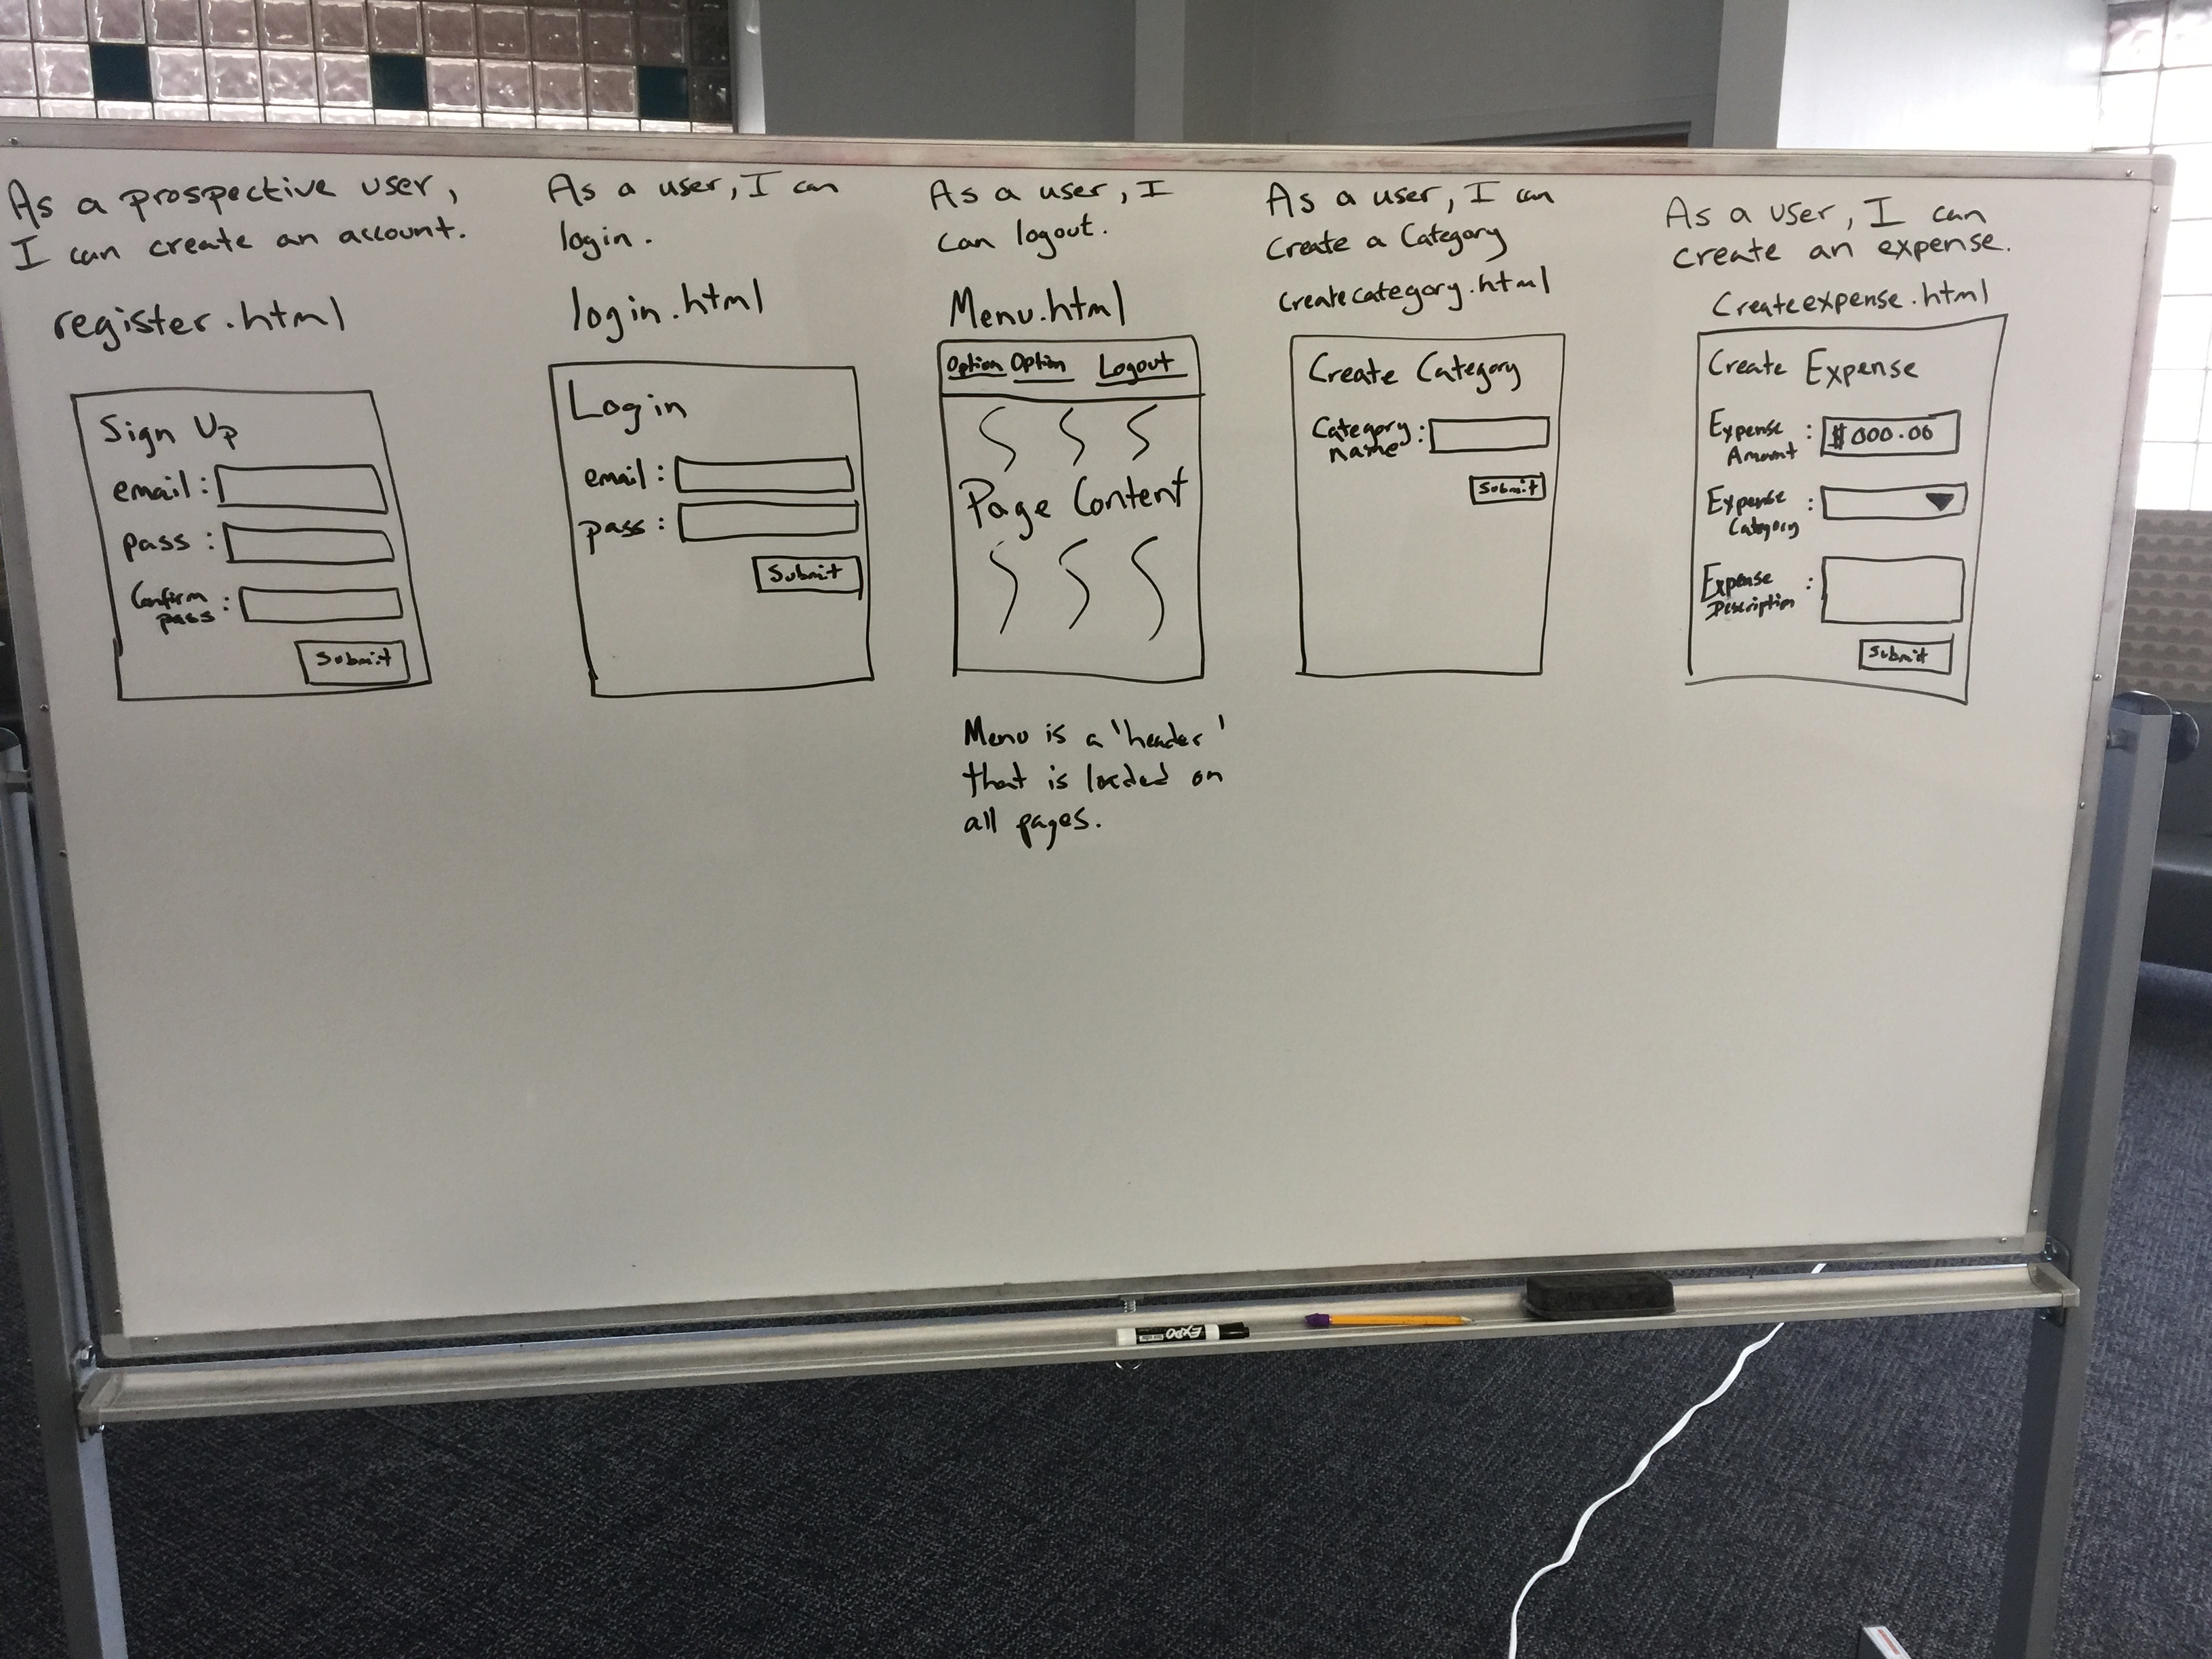 As a prospective user,
I can create an account.
register.html
Sign Up
email :
pass :
Confirm
pass :
Submit
As a user, I can
login.
login.html
Login
email :
pass :
Submit
As a user, I
can logout.
Menu.html
Option Option Logout
Page Content
Menu is a 'header'
that is loaded on
all pages.
As a user, I can
Create a Category
createcategory.html
Create Category
Category
name :
Submit
As a user, I can
create an expense.
Createexpense.html
Create Expense
Expense
Amount : $000.00
Expense
Category :
Expense
Description :
Submit
EXPO